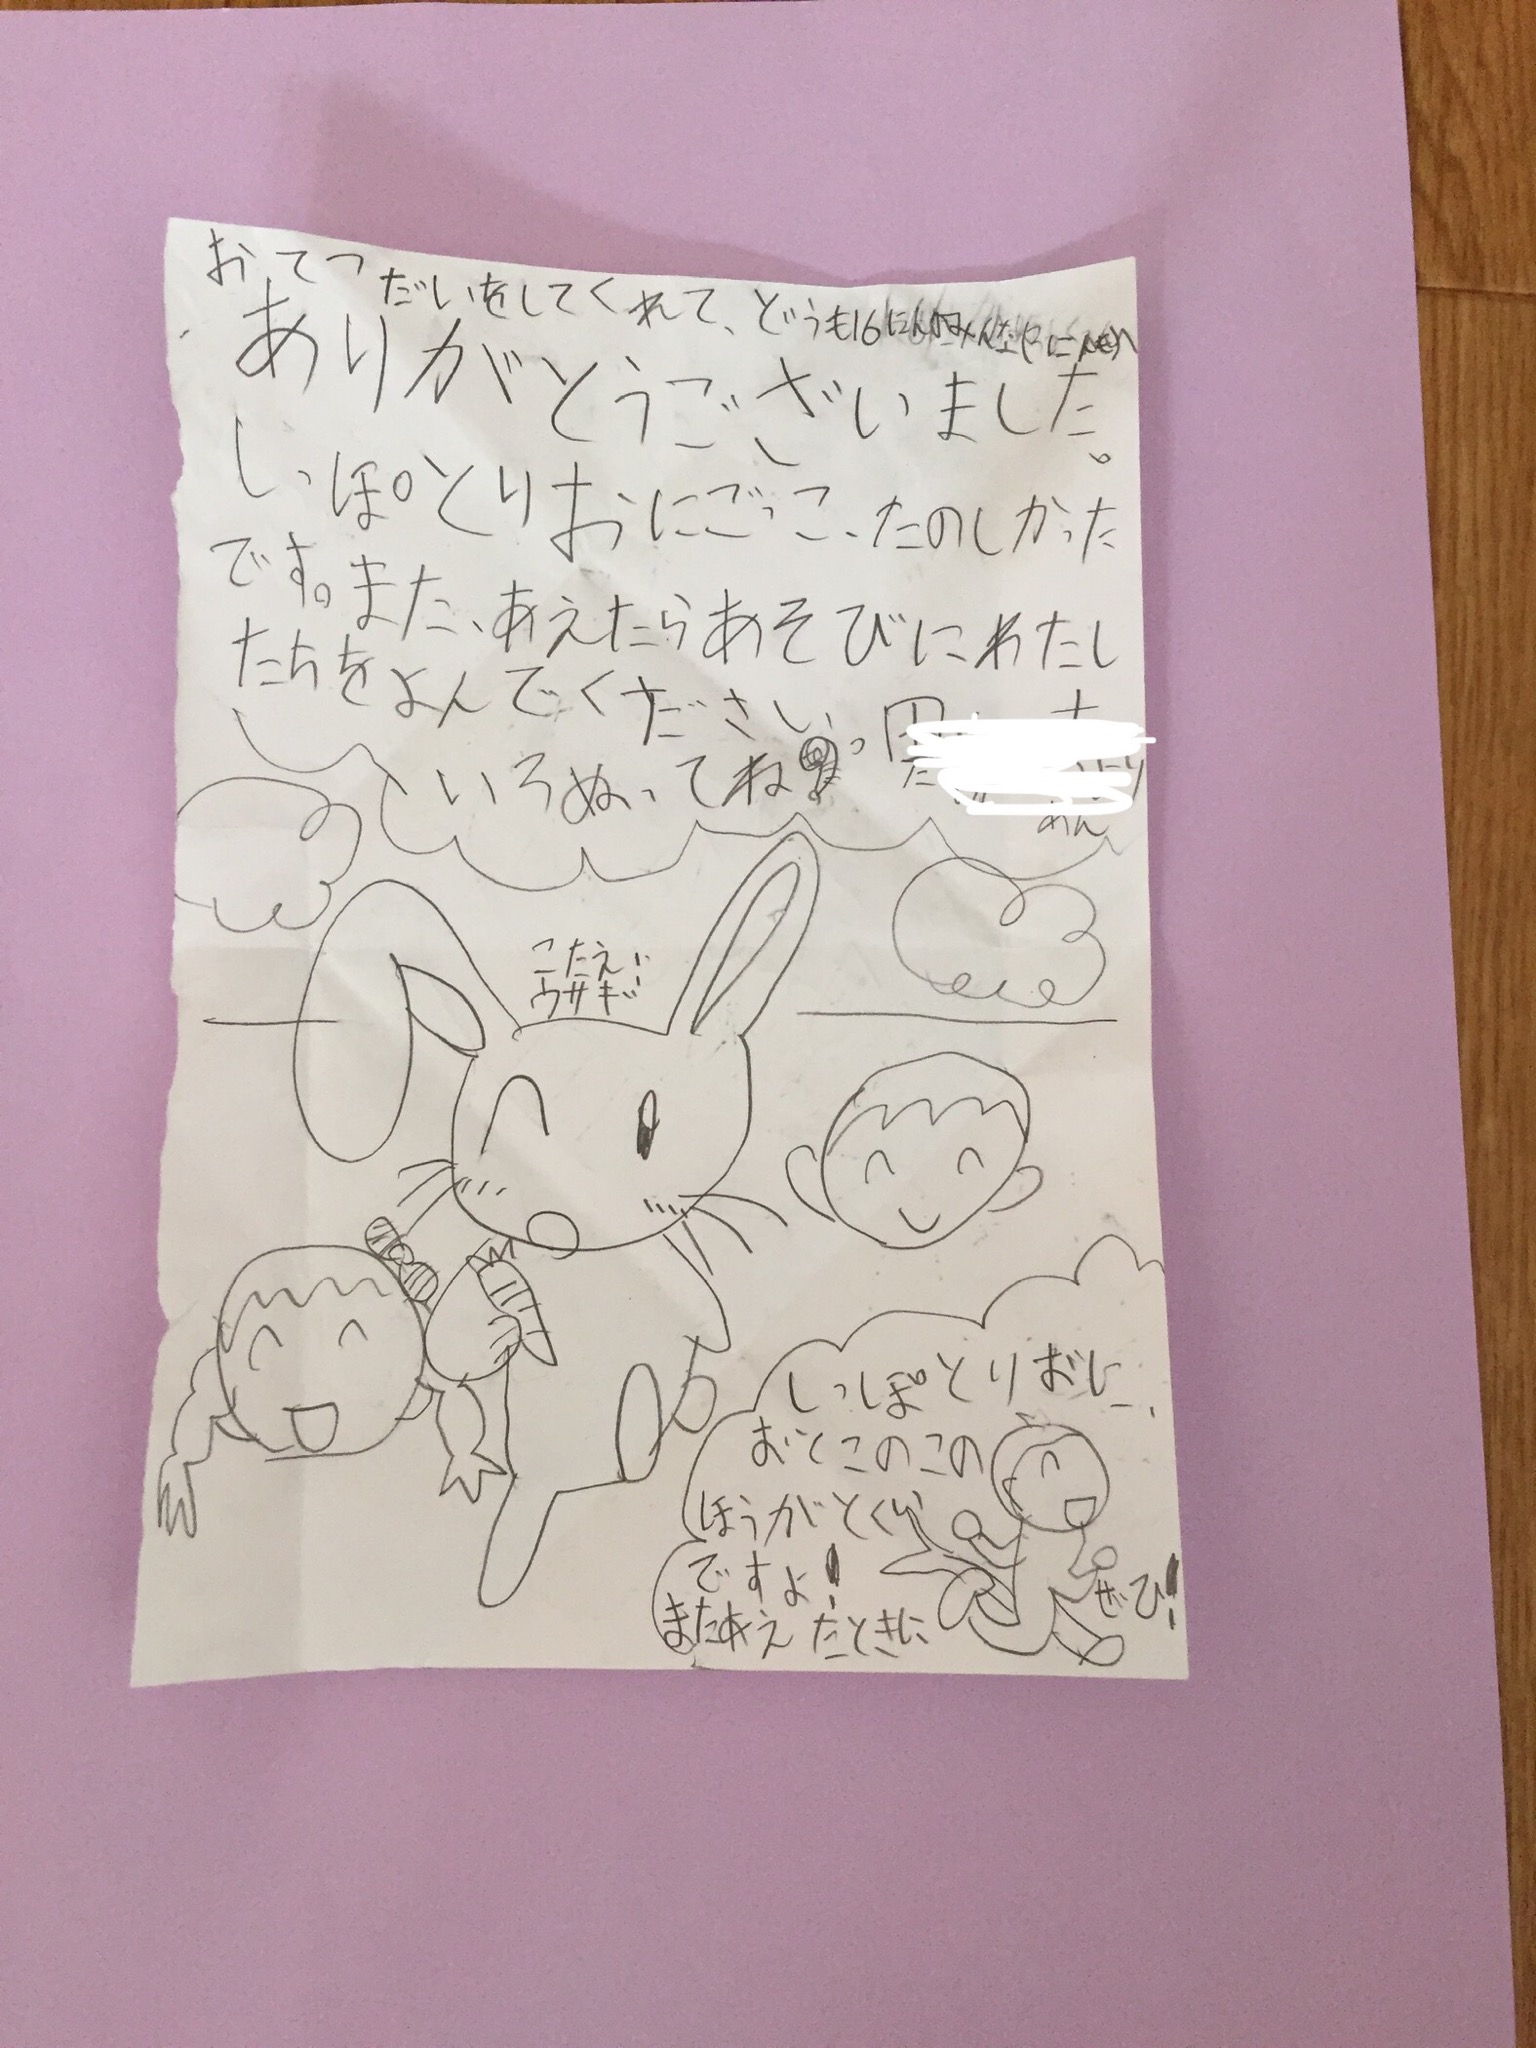 おてつだいをしてくれて、どうも16にんみんな
ありがとうございました。
しっぽとりおにごっこ、たのしかった
です。また、あえたらあそびにわたし
たちをよんでください。
といろぬってね
こたえ:
ウサギ
しっぽとりおに、
おとこのこの
ほうがとくい
ですよ!
またあえたときに
ぜひ!